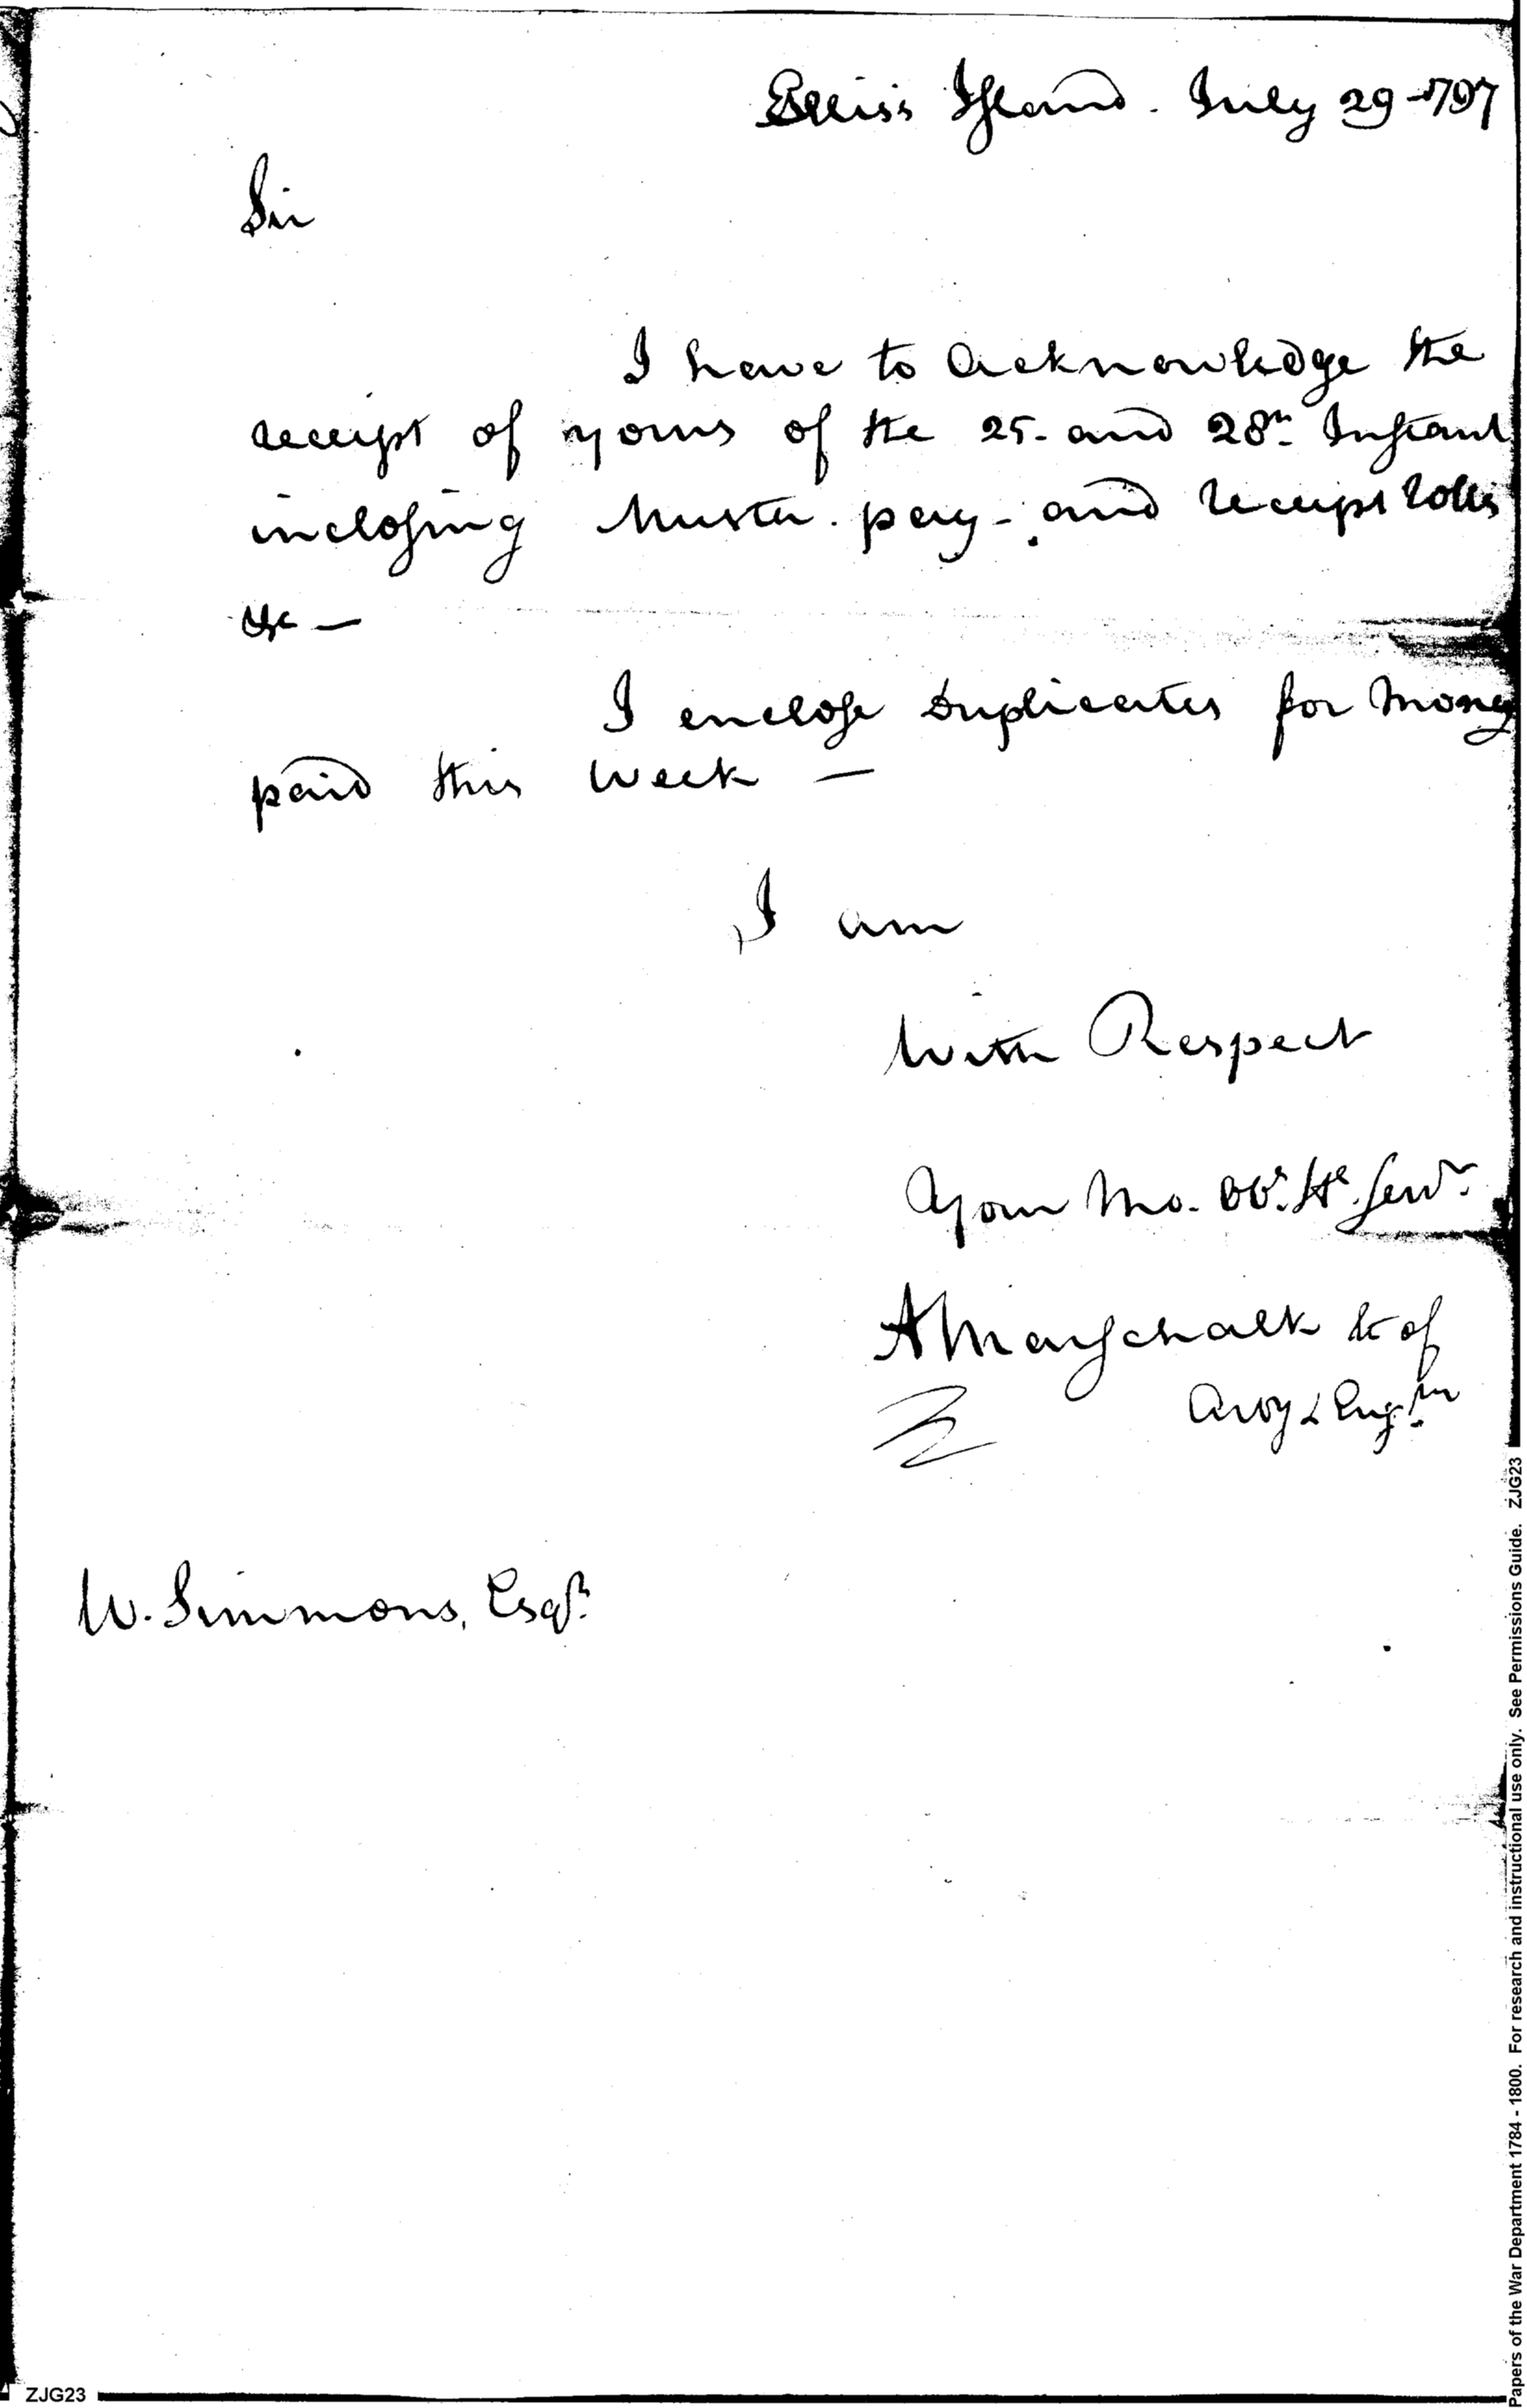 Elliss Island. July 29 1797
Sir
I have to acknowledge the
receipt of yours of the 25. and 28th. Instant
inclosing Muster. pay - and receipt rolls
&c —
I enclose Duplicates for Money
paid this Week —
I am
With Respect
Your Mo. Ob. He. Servt.
A Marschalk Lt of
Arty & Engrs
W. Simmons, Esqr.
ZJG23
Papers of the War Department 1784 - 1800. For research and instructional use only. See Permissions Guide. ZJG23